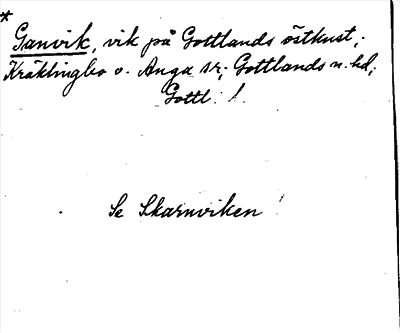 *
Ganvik, vik på Gottlands östkust;
Kräklingbo o. Anga sr; Gottlands n. hd;
Gottl. l.
Se Skarnviken